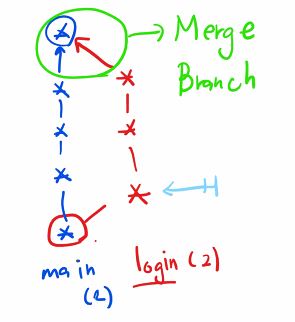 Merge
Branch
H
main
(2)
login (2)